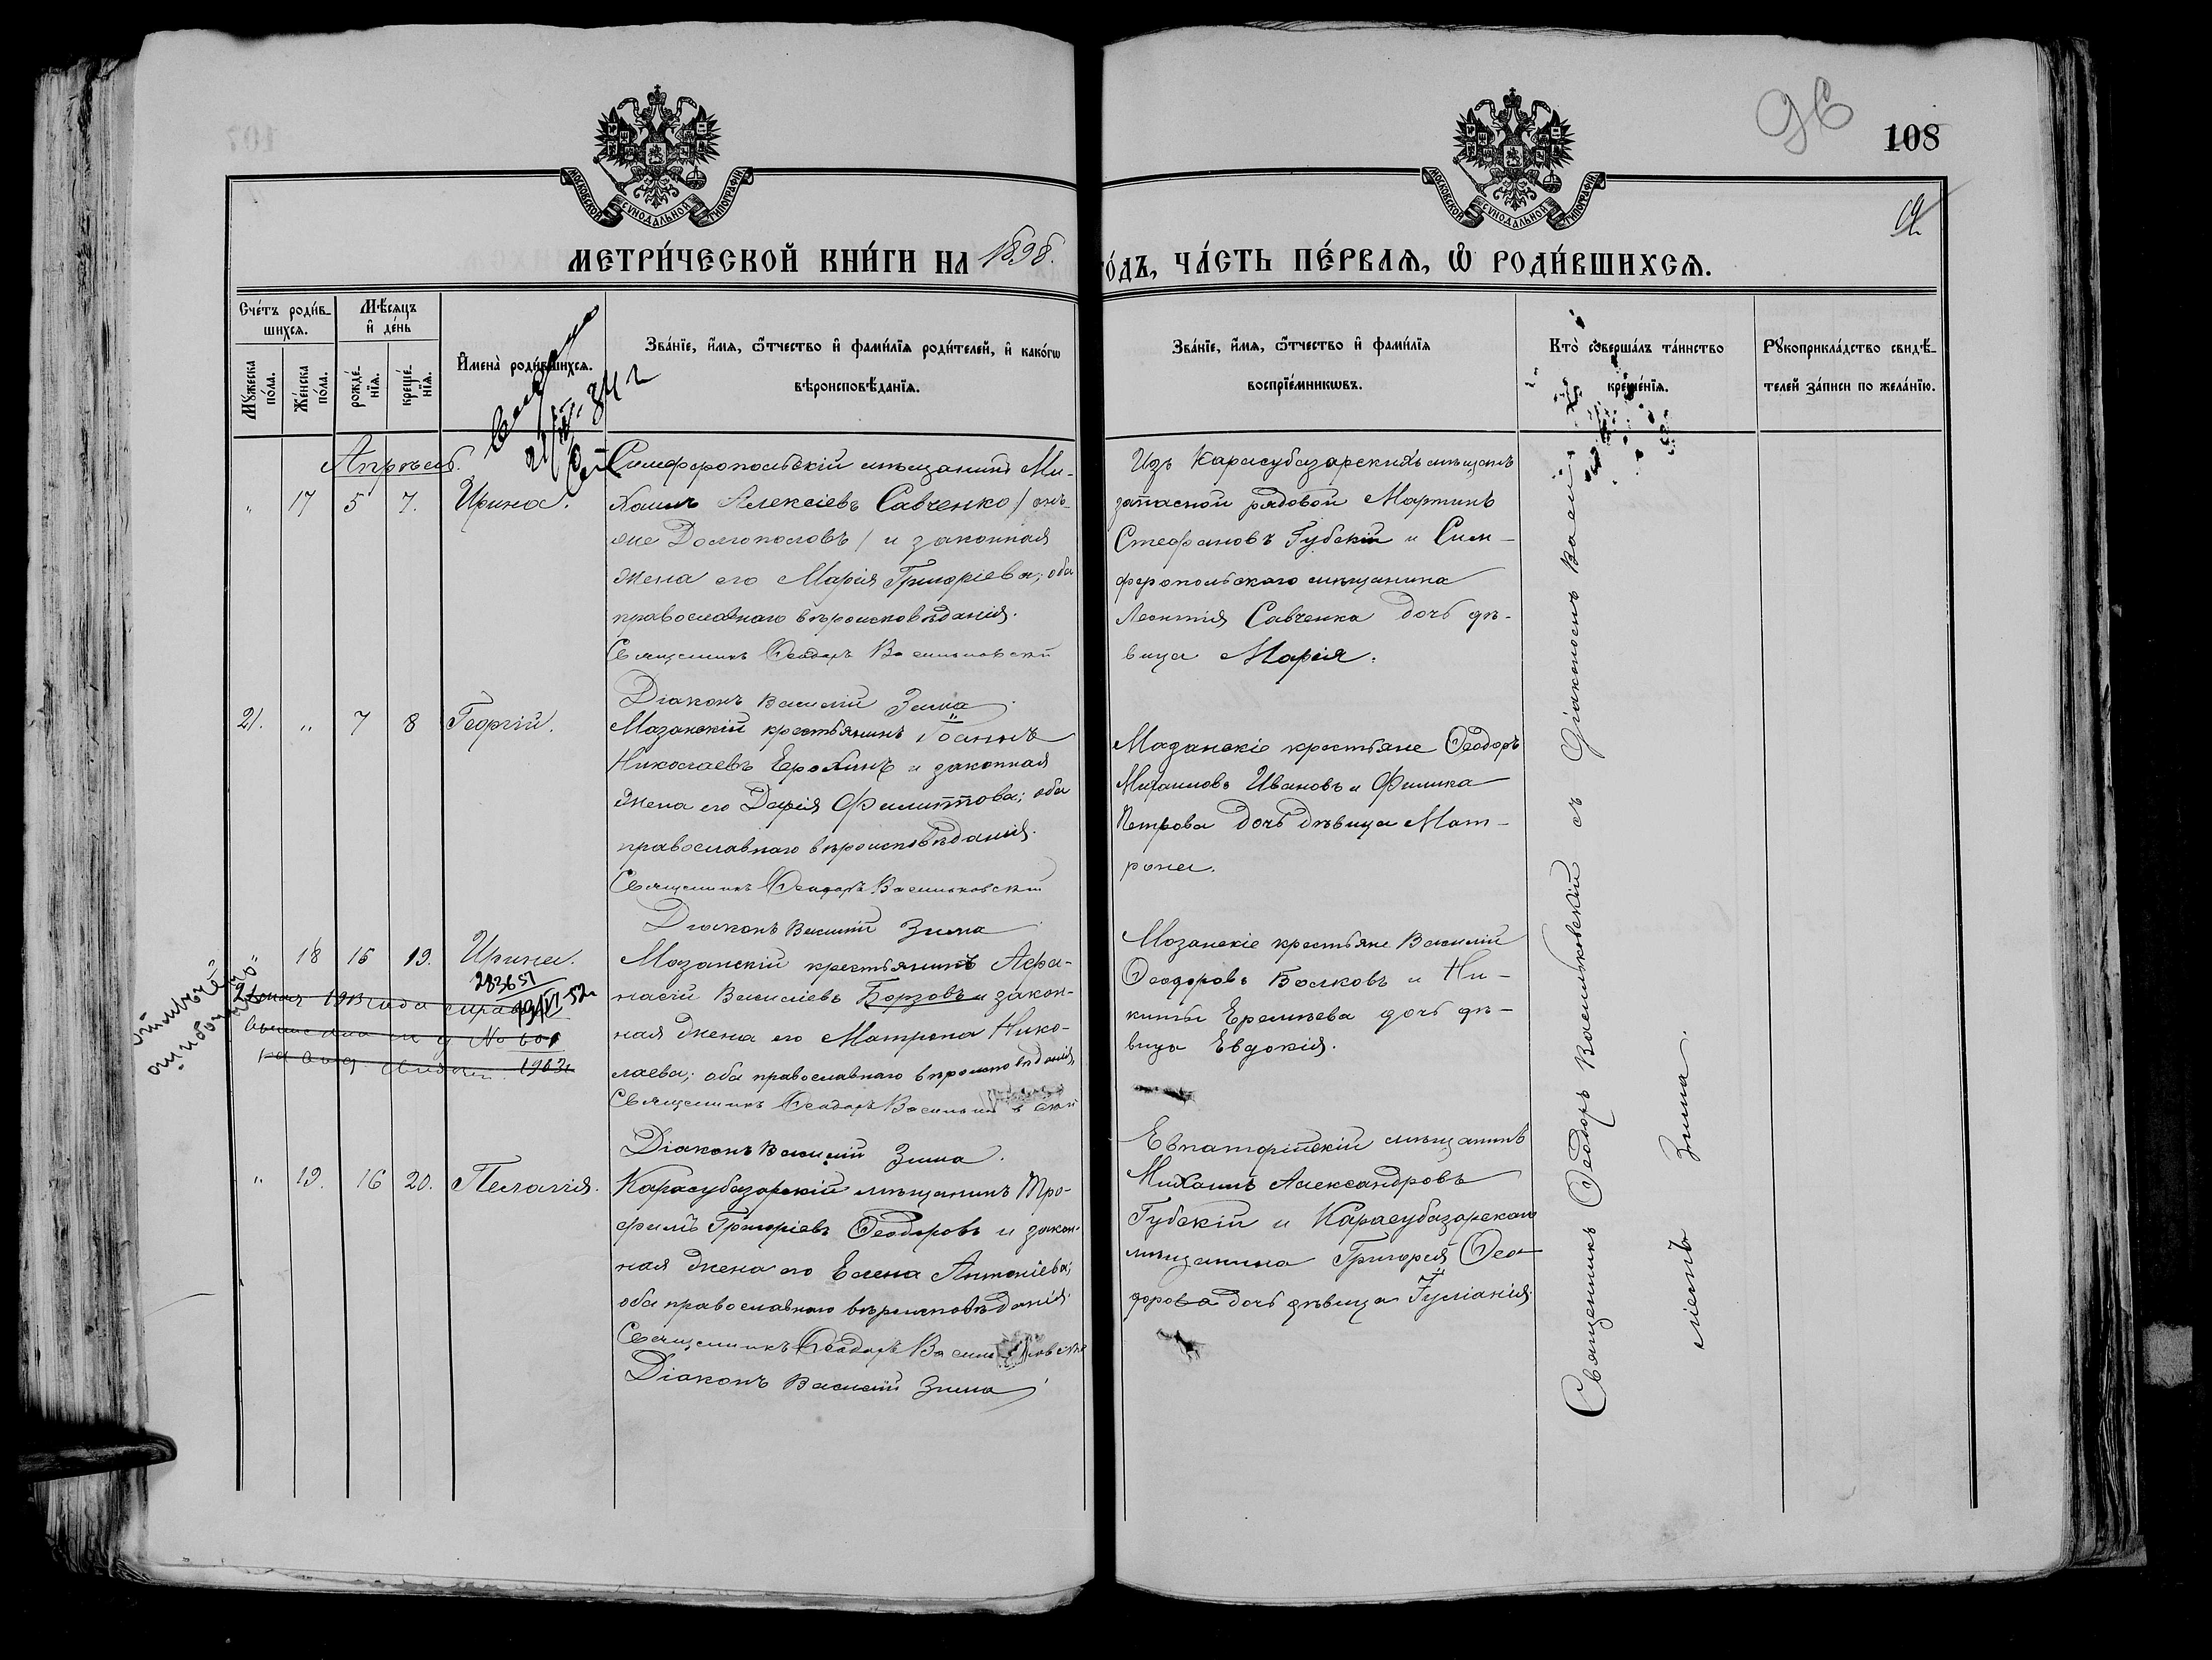 108
МОСКОВСКОЙ СУНОДАЛЬНОЙ ТИПОГРАФІИ
МОСКОВСКОЙ СУНОДАЛЬНОЙ ТИПОГРАФІИ
МЕТРИ́ЧЕСКОЙ КНИ́ГИ НА 1898.
го́дъ, ЧА́СТЬ ПЕ́РВАЯ, Ѡ҆ РОДИ́ВШИХСЯ.
Сче́тъ роди́в-
шихся.
Мѣ́сяцъ
и҆ де́нь
Мꙋ́жеска
по́ла.
Же́нска
по́ла.
рожде́-
нїя.
креще́-
нїя.
И҆мена̀ роди́вшихся.
Зва́нїе, и҆́мя, ѻ҆́тчество и҆ фами́лїя роди́телей, и҆ како́гѡ
вѣроисповѣ́данїя.
Зва́нїе, и҆́мя, ѻ҆́тчество и҆ фами́лїя
воспрїе́мникѡвъ.
Кто̀ соверша́лъ та́инство
креще́нїя.
Рꙋкоприкла́дство свидѣ́-
телей за́писи по жела́нїю.
Апрѣль.
" 17 5 7. Ирина.
Симферопольскій мѣщанинъ Ми-
хаилъ Алексіевъ Савченко / онъ-
же Долгополовъ / и законная
жена его Марія Григоріева; оба
православнаго вѣроисповѣданія.
Священникъ Ѳеодоръ Васильковскій
Діаконъ Василій Зима
Изъ Карасубазарскихъ мѣщанъ
запасной рядовой Мартинъ
Стефановъ Губскій и Сим-
феропольскаго мѣщанина
Леонтія Савченка дочь дѣ-
вица Марія.
21. " 7 8 Георгій.
Мазанскій крестьянинъ Іоаннъ
Николаевъ Ерохинъ и законная
жена его Дарія Филиппова; оба
православнаго вѣроисповѣданія.
Священникъ Ѳеодоръ Васильковскій
Діаконъ Василій Зима
Мазанскіе крестьяне Ѳеодоръ
Михаиловъ Ивановъ и Филиппа
Петрова дочь дѣвица Мат-
рона.
" 18 15 19. Ирина.
283651
19/VI-52г
Мазанскій крестьянинъ Аѳа-
насій Василіевъ Борзовъ и закон-
ная жена его Матрона Нико-
лаева; оба православнаго вѣроисповѣданія.
Священникъ Ѳеодоръ Васильковскій
Діаконъ Василій Зима.
Мазанскіе крестьяне Василій
Ѳеодоровъ Волковъ и Ни-
киты Еремѣева дочь дѣ-
вица Евдокія.
" 19. 16 20. Пелагія.
Карасубазарскій мѣщанинъ Тро-
фимъ Григоріевъ Ѳеодоровъ и закон-
ная жена его Елена Антоніева;
оба православнаго вѣроисповѣданія.
Священникъ Ѳеодоръ Васильковскій
Діаконъ Василій Зима
Евпаторійскій мѣщанинъ
Михаилъ Александровъ
Губскій и Карасубазарскаго
мѣщанина Григорія Ѳео-
дорова дочь дѣвица Іуліанія.
Священникъ Ѳеодоръ Васильковскій съ Діакономъ Васи-
ліемъ Зима.